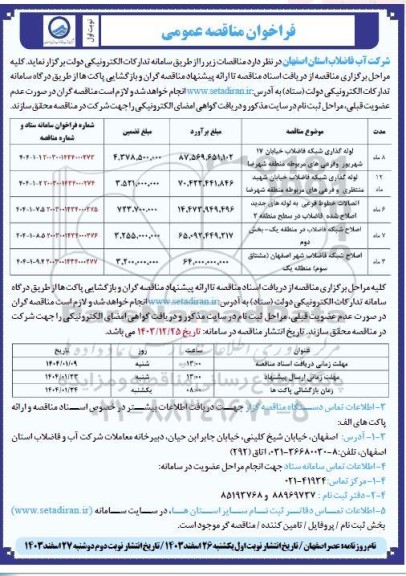 فراخوان مناقصه عمومی
نوبت اول
شرکت آب فاضلاب استان اصفهان در نظر دارد مناقصات زیر را از طریق سامانه تدارکات الکترونیکی دولت برگزار نماید. کلیه
مراحل برگزاری مناقصه از دریافت اسناد مناقصه تا ارائه پیشنهاد مناقصه گران و بازگشایی پاکت ها از طریق درگاه سامانه
تدارکات الکترونیکی دولت (ستاد) به آدرس www.setadiran.ir انجام خواهد شد و لازم است مناقصه گران در صورت عدم
عضویت قبلی، مراحل ثبت نام در سایت مذکور و دریافت گواهی امضای الکترونیکی را جهت شرکت در مناقصه محقق سازند.
مدت موضوع مناقصه مبلغ برآورد مبلغ تضمین شماره فراخوان سامانه ستاد و شماره مناقصه
۸ ماه لوله گذاری شبکه فاضلاب خیابان ۱۷ شهریور وفرعی های مربوطه منطقه شهرضا ۸۷,۵۶۹,۶۵۱,۱۰۲ ۴,۳۷۸,۵۰۰,۰۰۰
۱۲ ماه لوله گذاری شبکه فاضلاب خیابان شهید منتظری و فرعی های مربوطه منطقه شهرضا ۷۰,۴۲۲,۴۴۱,۸۴۶ ۳,۵۲۱,۰۰۰,۰۰۰
۶ ماه اتصالات خطوط فرعی به لوله های جدید اصلاح شده فاضلاب در سطح منطقه ۲ ۱۴,۴۷۳,۹۴۹,۴۹۶ ۷۲۳,۷۰۰,۰۰۰
۷ ماه اصلاح شبکه فاضلاب در منطقه یک- بخش دوم ۶۵,۰۹۲,۴۴۹,۲۱۷ ۳,۲۵۵,۰۰۰,۰۰۰
۶ ماه اصلاح شبکه فاضلاب شهر اصفهان (مشتاق سوم) منطقه یک ۶۴,۰۰۰,۰۰۰,۰۰۰ ۳,۲۰۰,۰۰۰,۰۰۰
کلیه مراحل برگزاری مناقصه از دریافت اسناد مناقصه تا ارائه پیشنهاد مناقصه گران و بازگشایی پاکت ها از طریق درگاه
سامانه تدارکات الکترونیکی دولت (ستاد) به آدرس: www.setadiran.ir انجام خواهد شد و لازم است مناقصه گران
در صورت عدم عضویت قبلی، مراحل ثبت نام در سایت مذکور و دریافت گواهی امضای الکترونیکی را جهت شرکت
در مناقصه محقق سازند. تاریخ انتشار مناقصه در سامانه: تاریخ ۱۴۰۳/۱۲/۲۵ می باشد.
عنوان ساعت روز تاریخ
مهلت زمانی دریافت اسناد مناقصه ۱۳:۰۰ شنبه ۱۴۰۴/۰۱/۰۹
مهلت زمانی ارسال پیشنهاد ۱۳:۰۰ شنبه ۱۴۰۴/۰۱/۲۳
زمان بازگشائی پاکت ها ۰۸:۰۰ یکشنبه ۱۴۰۴/۰۱/۲۴
۰۲۱-۸۸۳۴۹۶۷۰-۵
۳- اطلاعات تماس دستگاه مناقصه گزار جهت دریافت اطلاعات بیشتر در خصوص اسناد مناقصه و ارائه
پاکت های الف:
۳-۱- آدرس: اصفهان، خیابان شیخ کلینی، خیابان جابر ابن حیان، دبیرخانه معاملات شرکت آب و فاضلاب استان
اصفهان، تلفن: ۸-۳۶۶۸۰۰۳۰-۰۳۱، اتاق (۲۹۲)
۴- اطلاعات تماس سامانه ستاد جهت انجام مراحل عضویت در سامانه:
۴-۱- مرکز تماس: ۴۱۹۳۴-۰۲۱
۴-۲- دفتر ثبت نام: ۸۸۹۶۹۷۳۷ و ۸۵۱۹۳۷۶۸
۵- اطلاعات تماس دفاتر ثبت نام سایر استان ها، در سایت سامانه (www.setadiran.ir)
بخش ثبت نام / پروفایل / تامین کننده / مناقصه گر موجود است.
نام روزنامه: عصر اصفهان / تاریخ انتشار نوبت اول یکشنبه ۲۶ اسفند ۱۴۰۳ / تاریخ انتشار نوبت دوم دوشنبه ۲۷ اسفند ۱۴۰۳